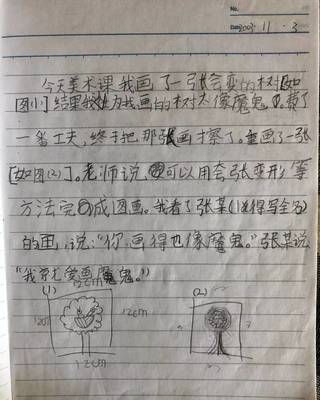 No.
Date 2003·11·3
今天美术课,我画了一张会变的树[如
图(1)]结果我认为我画的树太像魔鬼,费了
一番工夫,终于把那张画擦了。重画了一张
[如图(2)]。老师说,可以用夸张变形等
方法完成图画。我看了张某(1不得写全名)
的画,说:“你画得也像魔鬼。”张某说
“我就爱画魔鬼。”)
(1) 12cm (2)
12cm 12cm
12cm